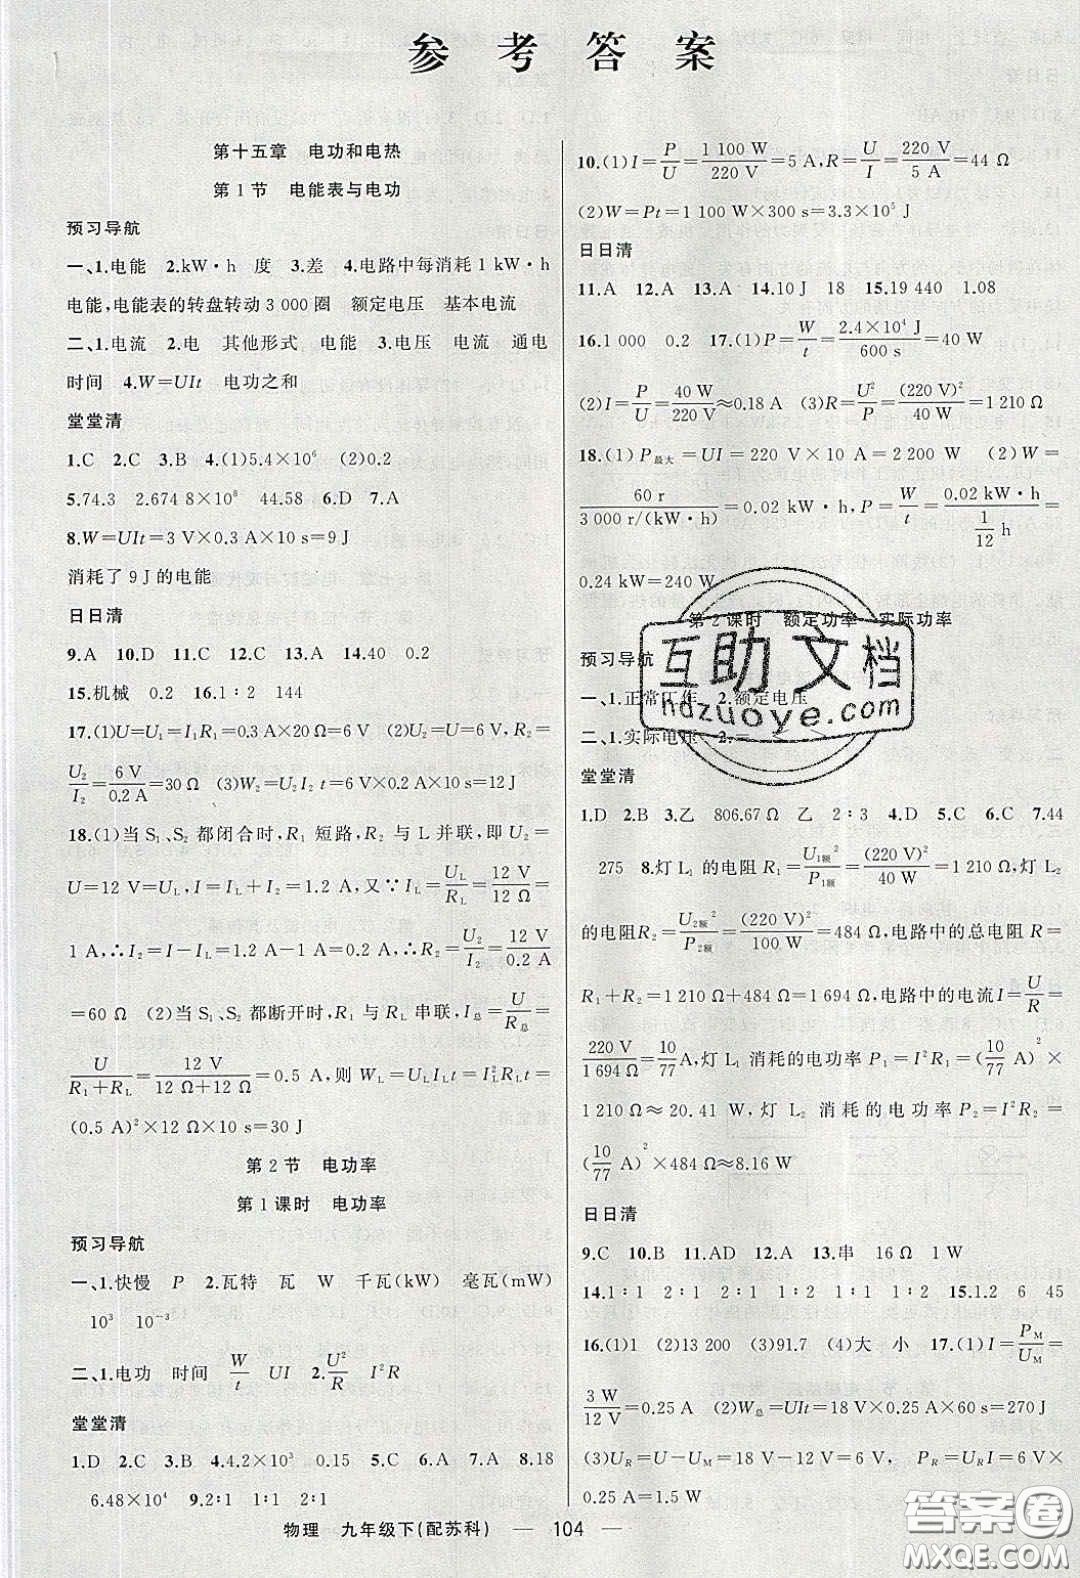 参考答案
第十五章 电功和电热
第1节 电能表与电功
预习导航
一、1.电能 2.kW·h 度 3.差 4.电路中每消耗1 kW·h
电能,电能表的转盘转动3 000圈 额定电压 基本电流
二、1.电流 2.电 其他形式 电能 3.电压 电流 通电
时间 4.W=UIt 电功之和
堂堂清
1.C 2.C 3.B 4.(1)5.4×10⁶ (2)0.2
5.74.3 2.674 8×10⁸ 44.58 6.D 7.A
8.W=UIt=3 V×0.3 A×10 s=9 J
消耗了9 J的电能
日日清
9.A 10.D 11.C 12.C 13.A 14.40 0.2
15.机械 0.2 16.1∶2 144
17.(1)U=U₁=I₁R₁=0.3 A×20 Ω=6 V (2)U₂=U=6 V,R₂=
U₂/I₂=6 V/0.2 A=30 Ω (3)W₂=U₂I₂t=6 V×0.2 A×10 s=12 J
18.(1)当S₁、S₂都闭合时,R₁短路,R₂与L并联,即U₂=
U=12 V=U_L,I=I_L+I₂=1.2 A,又∵I_L=U_L/R_L=12 V/12 Ω=
1 A,∴I₂=I-I_L=1.2 A-1 A=0.2 A,∴R₂=U₂/I₂=12 V/0.2 A
=60 Ω (2)当S₁、S₂都断开时,R₁与R_L串联,I总=U/R总=
U/(R₁+R_L)=12 V/(12 Ω+12 Ω)=0.5 A,则W_L=U_L I_L t=I_L²R_L t=
(0.5 A)²×12 Ω×10 s=30 J
第2节 电功率
第1课时 电功率
预习导航
一、1.快慢 P 2.瓦特 瓦 W 千瓦(kW) 毫瓦(mW)
10³ 10⁻³
二、1.电功 时间 W/t UI 2.U²/R I²R
堂堂清
1.D 2.C 3.C 4.4.2×10³ 0.15 5.C 6.A 7.A 8.18
6.48×10⁴ 9.2∶1 1∶1 2∶1
10.(1)I=P/U=1 100 W/220 V=5 A,R=U/I=220 V/5 A=44 Ω
(2)W=Pt=1 100 W×300 s=3.3×10⁵ J
日日清
11.A 12.A 13.A 14.10 J 18 15.19 440 1.08
16.1 000 0.2 17.(1)P=W/t=2.4×10⁴ J/600 s=40 W
(2)I=P/U=40 W/220 V≈0.18 A (3)R=U²/P=(220 V)²/40 W=1 210 Ω
18.(1)P最大=UI=220 V×10 A=2 200 W (2)W=
60 r/3 000 r/(kW·h)=0.02 kW·h,P=W/t=0.02 kW·h/(1/12 h)=
0.24 kW=240 W
第2课时 额定功率 实际功率
预习导航
一、1.正常工作 2.额定电压
二、1.实际电压 2.=
堂堂清
1.D 2.B 3.乙 806.67 Ω 乙 2∶3 4.D 5.C 6.C 7.44
275 8.灯L₁的电阻R₁=U₁额²/P₁额=(220 V)²/40 W=1 210 Ω,灯L₂
的电阻R₂=U₂额²/P₂额=(220 V)²/100 W=484 Ω,电路中的总电阻R=
R₁+R₂=1 210 Ω+484 Ω=1 694 Ω,电路中的电流I=U/R=
220 V/1 694 Ω=10/77 A,灯L₁消耗的电功率P₁=I²R₁=(10/77 A)²×
1 210 Ω≈20.41 W,灯L₂消耗的电功率P₂=I²R₂=
(10/77 A)²×484 Ω≈8.16 W
日日清
9.C 10.B 11.AD 12.A 13.串 16 Ω 1 W
14.1∶1 2∶1 2∶1 1∶1 1∶2 1∶2 15.1.2 6 45
16.(1)1 (2)13 200 (3)91.7 (4)大 小 17.(1)I=P_M/U_M=
3 W/12 V=0.25 A (2)W总=UIt=18 V×0.25 A×60 s=270 J
(3)U_R=U-U_M=18 V-12 V=6 V P_R=U_R I=6 V×
0.25 A=1.5 W
物理 九年级下(配苏科) — 104 —
互助文档
hdzuoye.com
答案圈
MXQE.COM